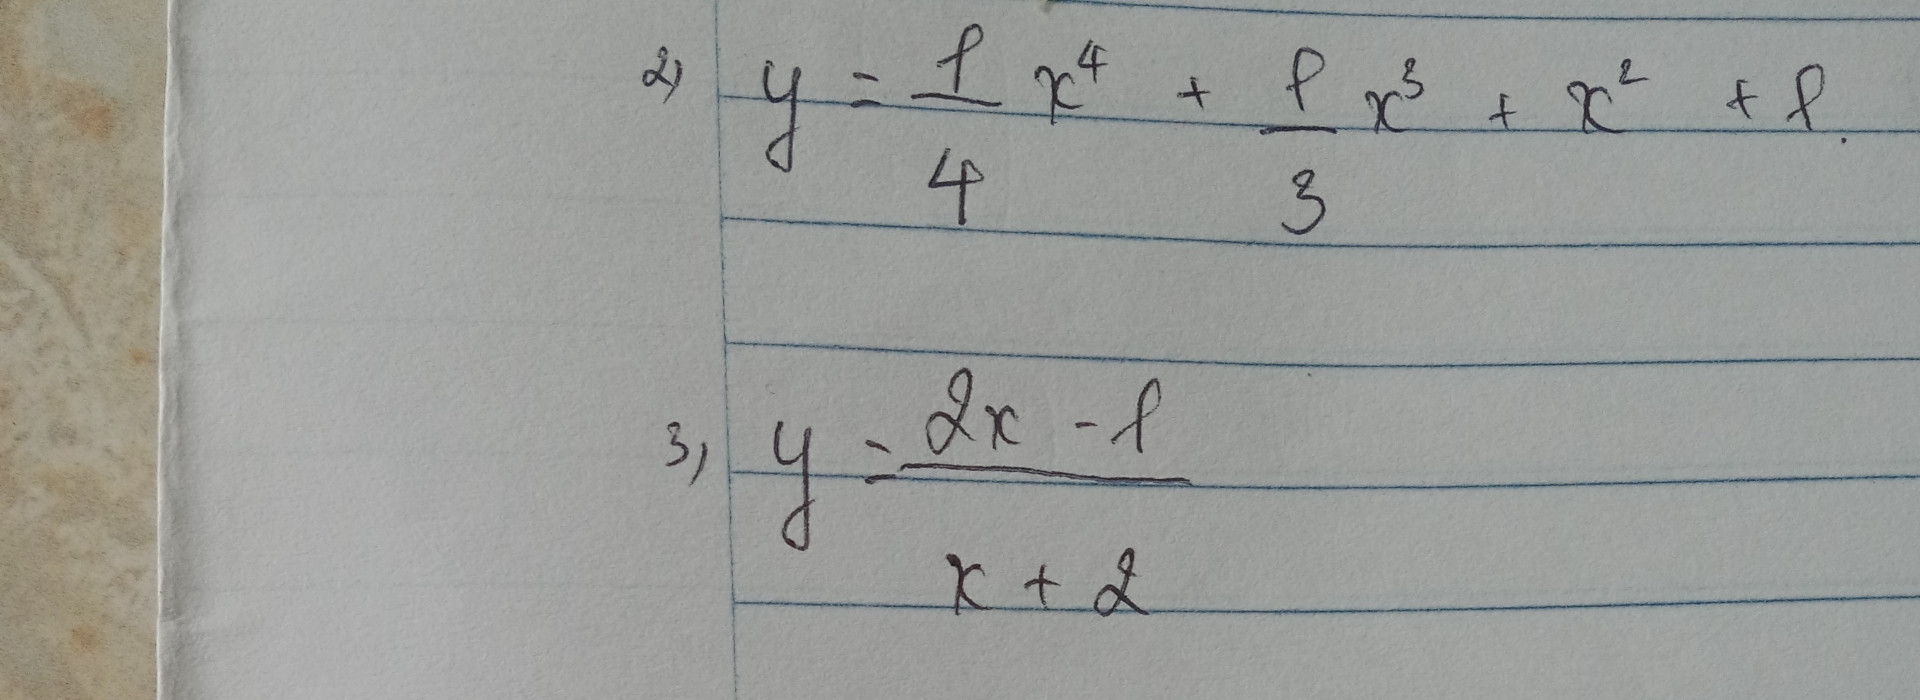 2) y = 1/4 x⁴ + 1/3 x³ + x² + 1.
3, y = (2x - 1)/(x + 2)